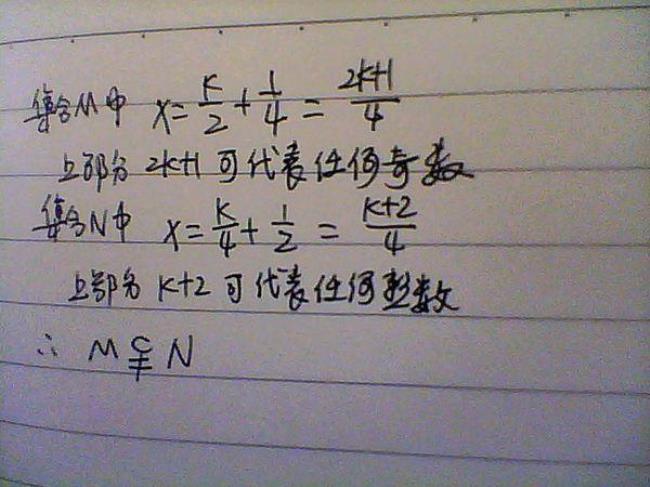 集合M中 x=k/2+1/4=2k+1/4
上部分 2k+1 可代表任何奇数
集合N中 x=k/4+1/2=k+2/4
上部分 k+2 可代表任何整数
∴ M⫋N